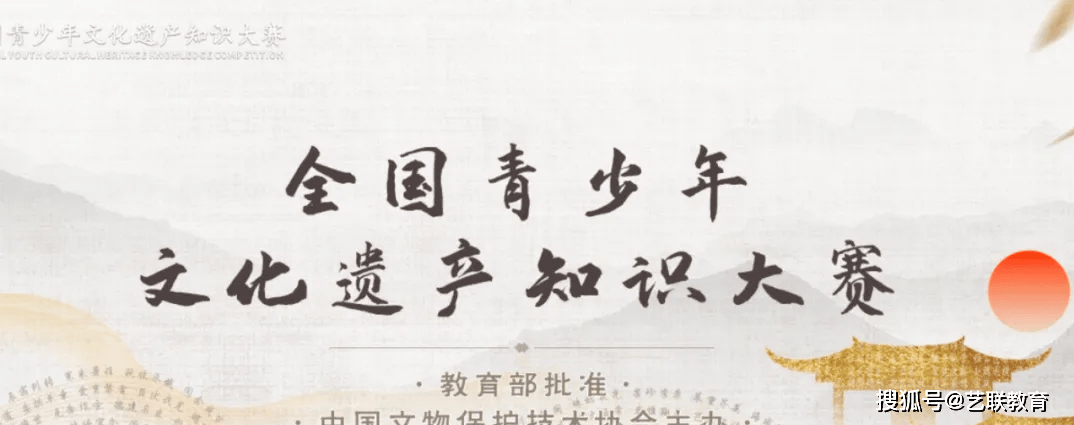 青少年文化遗产知识大赛
YOUTH CULTURAL HERITAGE KNOWLEDGE COMPETITION
全国青少年
文化遗产知识大赛
· 教育部批准 ·
· 中国文物保护技术协会主办 ·
搜狐号@艺联教育